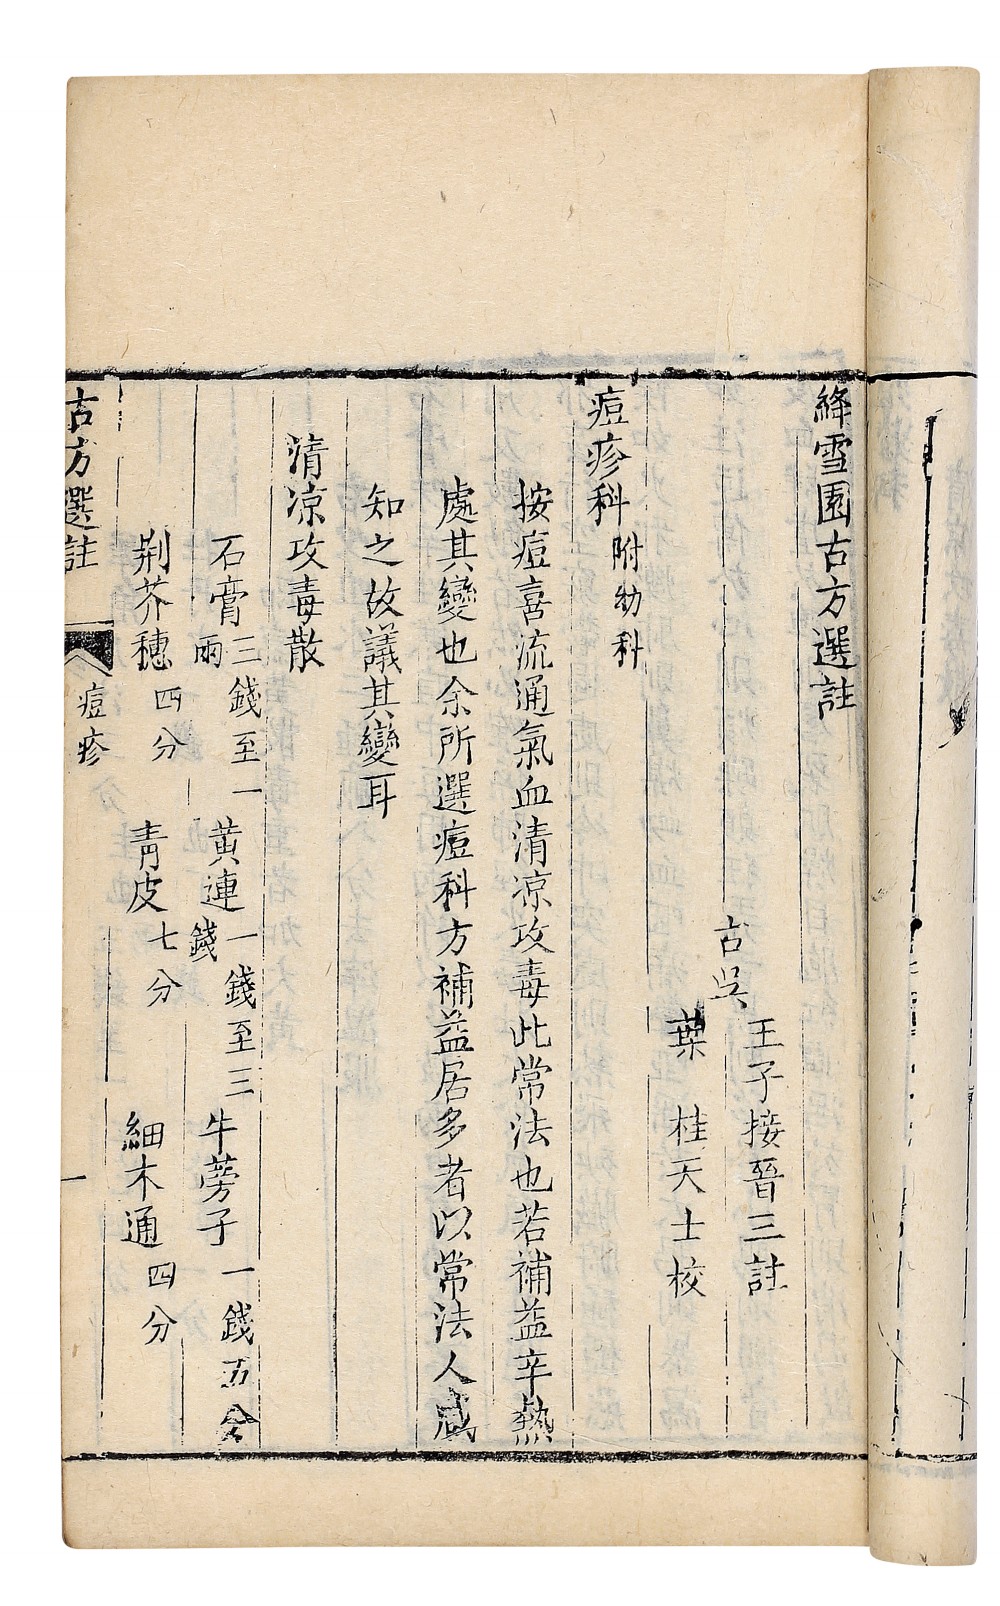 絳雪園古方選註
古吳
王子接晉三註
葉　桂天士校
痘疹科附幼科
按痘喜流通氣血清凉攻毒此常法也若補益辛熱
處其變也余所選痘科方補益居多者以常法人咸
知之故議其變耳
清凉攻毒散
石膏三錢至一兩　黃連一錢至三錢　牛蒡子一錢五分
荆芥穗四分　青皮七分　細木通四分
古方選註　痘疹　一